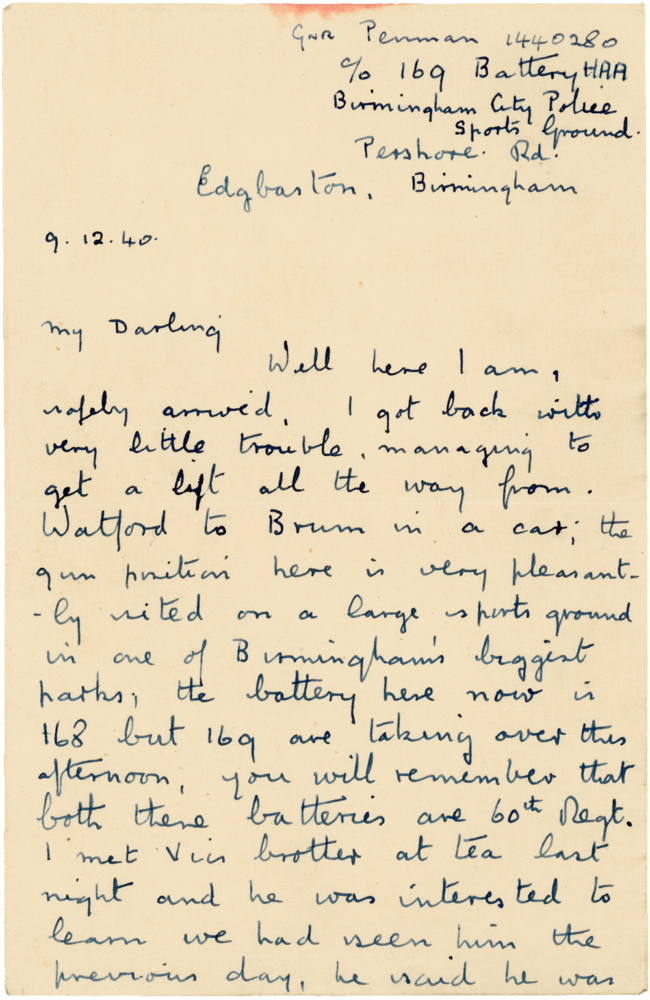 Gnr Penman 1440280
c/o 169 Battery HAA
Birmingham City Police
Sports Ground.
Pershore. Rd.
Edgbaston, Birmingham
9.12.40.
My Darling
Well here I am,
safely arrived, I got back with
very little trouble, managing to
get a lift all the way from.
Watford to Brum in a car; the
gun position here is very pleasant-
-ly sited on a large sports ground
in one of Birmingham's biggest
parks; the battery here now is
168 but 169 are taking over this
afternoon, you will remember that
both these batteries are 60th Regt.
I met Vics brother at tea last
night and he was interested to
learn we had seen him the
previous day, he said he was